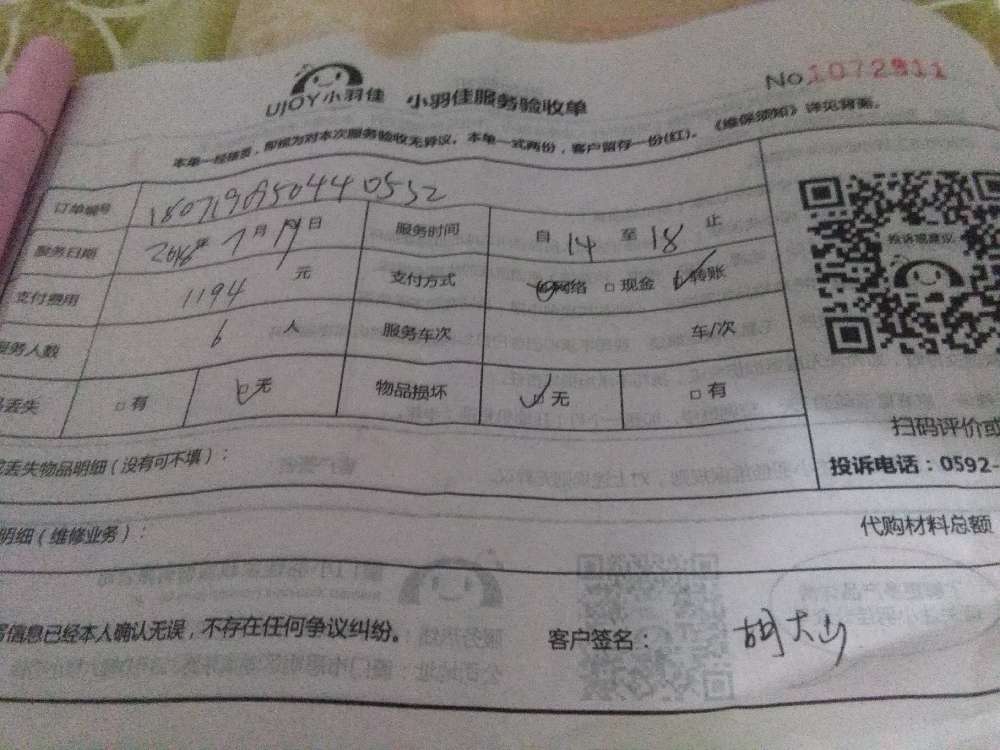 UJOY小羽佳 小羽佳服务验收单 No.1072911
本单一经签署,即视为对本次服务验收无异议。本单一式两份,客户留存一份(红)。《维保须知》详见背面。
订单编号 180719095044 0552
服务日期 2018年 7月 19日 服务时间 自 14 至 18 止
支付费用 1194 元 支付方式 网络 □现金 转账
服务人数 6 人 服务车次 车/次
丢失 □有 无 物品损坏 无 □有
投诉或建议
扫码评价或
投诉电话:0592-
丢失物品明细(没有可不填):
明细(维修业务): 代购材料总额
信息已经本人确认无误,不存在任何争议纠纷。 客户签名: 胡大山